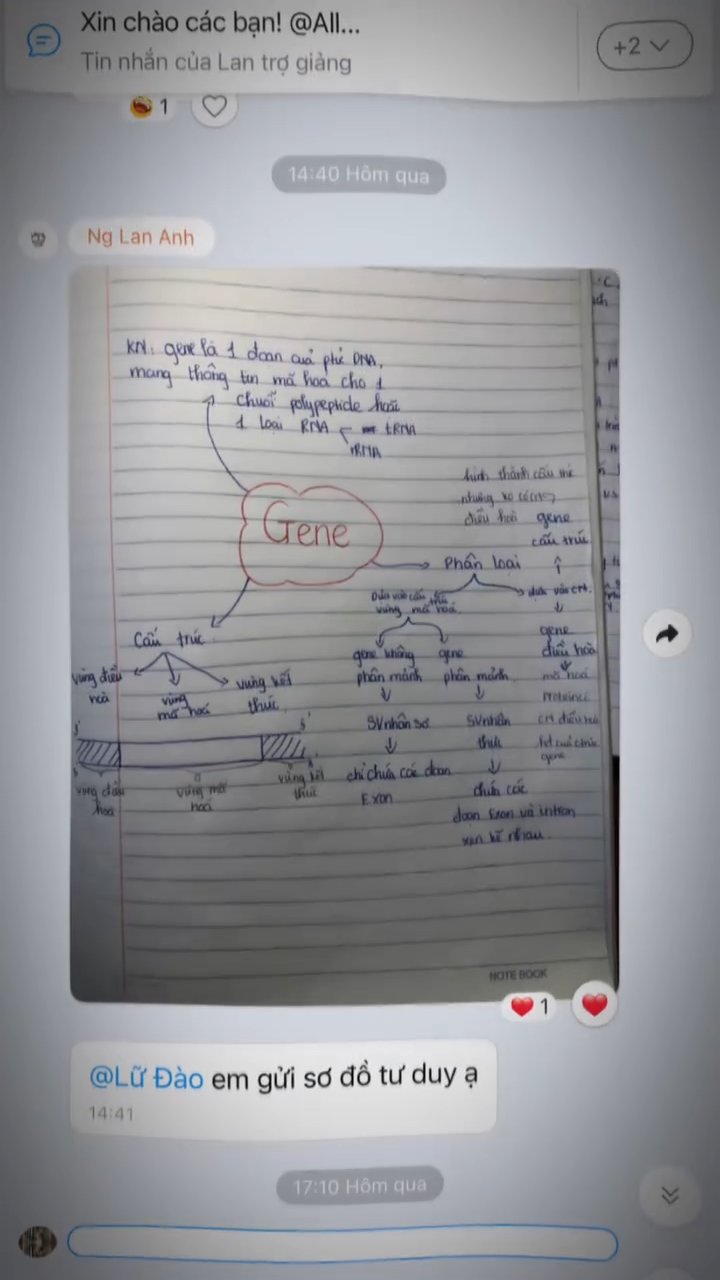 Xin chào các bạn! @All...
Tin nhắn của Lan trợ giảng
+2
1
14:40 Hôm qua
Ng Lan Anh
KN: gene là 1 đoạn của DNA,
mang thông tin mã hoá cho 1
chuỗi polypeptide hoặc
1 loại RNA tRNA
rRNA
Gene
hình thành cấu
nhưng ko
điều hoà
gene
cấu trúc
Phân loại
Dựa vào cấu trúc
vùng mã hoá
dựa vào
Cấu trúc
vùng điều
hoà
vùng
mã hoá
vùng kết
thúc
gene không
phân mảnh
gene
phân mảnh
gene
điều hoà
mã hoá
SV nhân sơ
SV nhân
thực
chỉ chứa các đoạn
Exon
chứa các
đoạn Exon và intron
xen kẽ nhau
gene
vùng điều
hoà
vùng mã
hoá
vùng kết
thúc
NOTE BOOK
1
@Lữ Đào em gửi sơ đồ tư duy ạ
14:41
17:10 Hôm qua